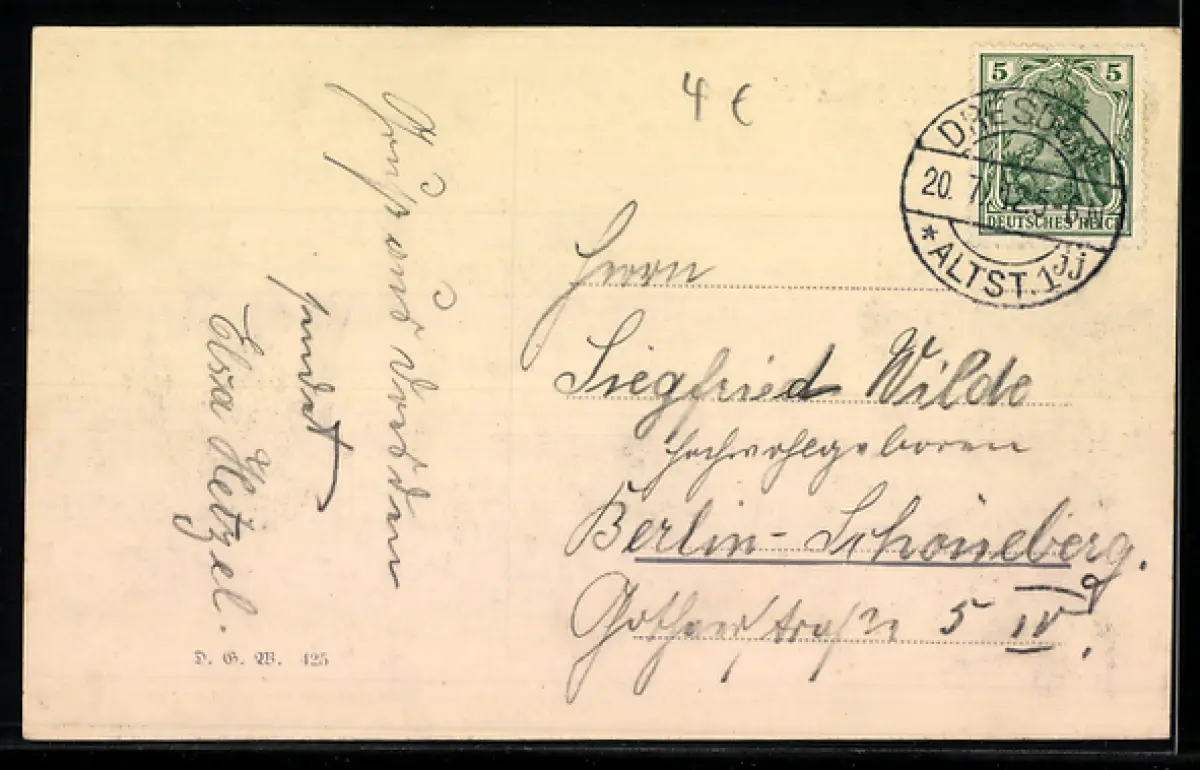 Gruß aus Dresden
sendet
Elsa Hetzel.
D. G. W. 125
4 €
5 5
DEUTSCHES REICH
DRESDEN
20. 7. 12. 5-6 N
* ALTST. 1 jj
Herrn
Siegfried Wilde
Hochwohlgeboren
Berlin-Schöneberg.
Gothaerstraße 5 IV